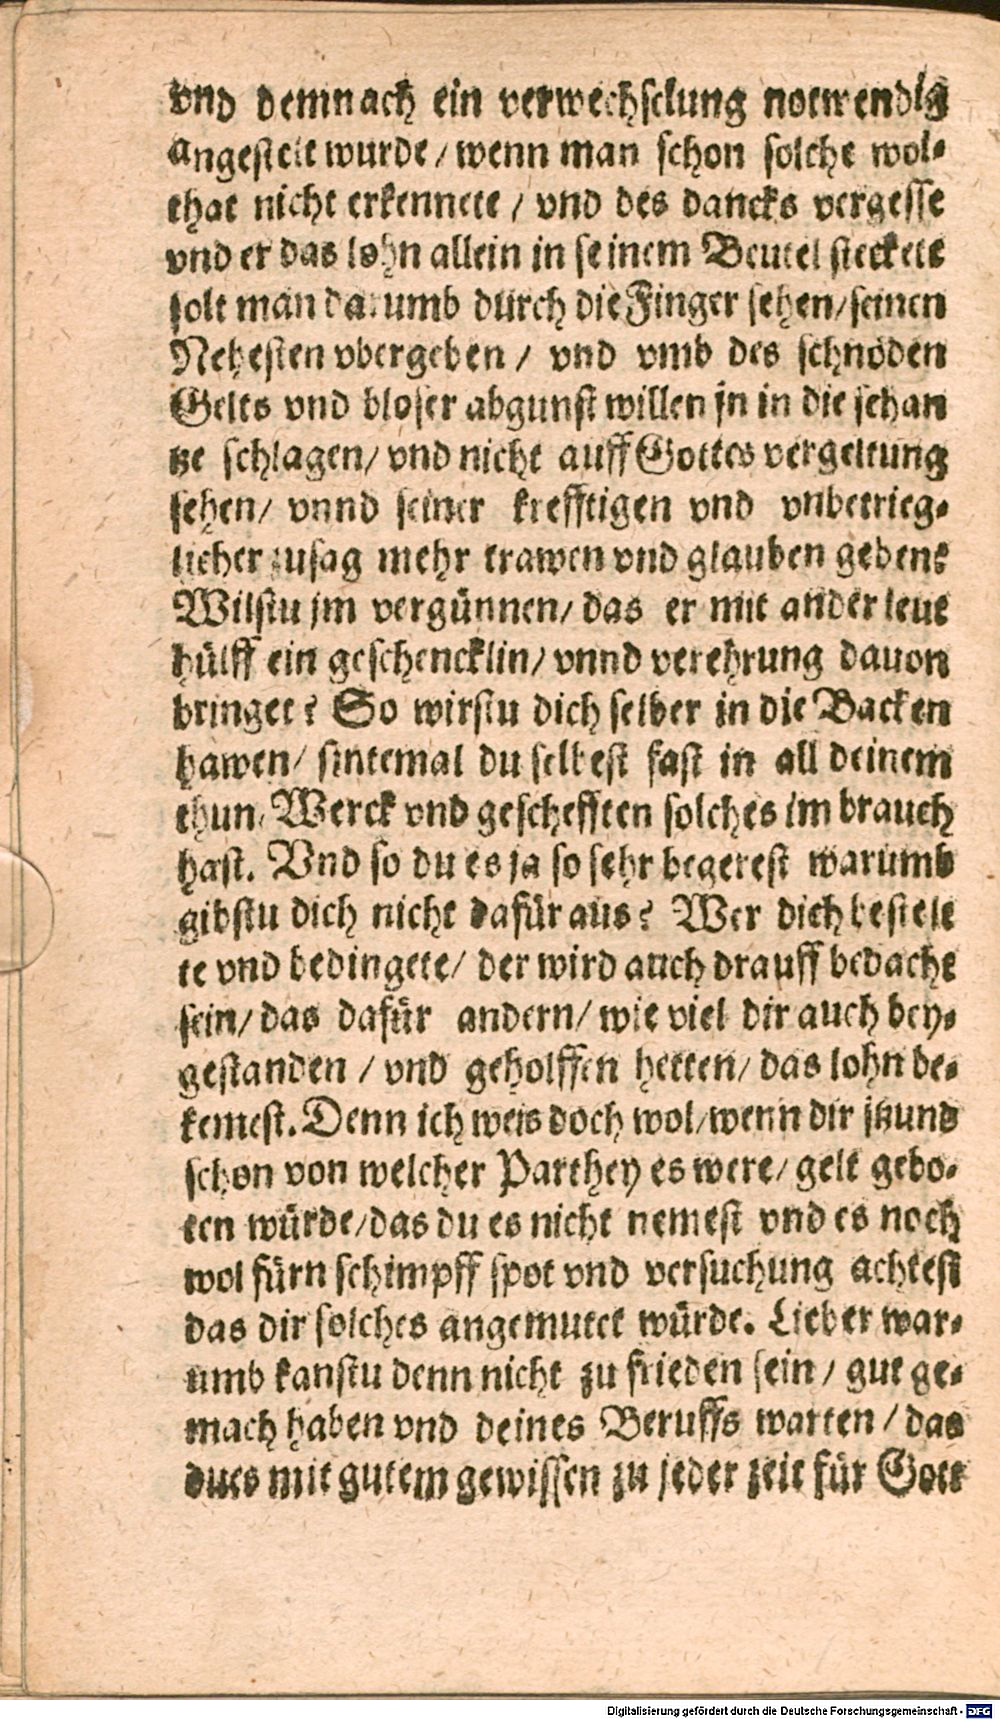 vnd demnach ein verwechselung notwendig
angestelt wurde/ wenn man schon solche wol-
that nicht erkennete / vnd des dancks vergesse
vnd er das lohn allein in seinem Beutel steckete
solt man darumb durch die Finger sehen/ seinen
Nehesten vbergeben / vnd vmb des schnöden
Gelts vnd bloser abgunst willen jn in die schan
tze schlagen/ vnd nicht auff Gottes vergeltung
sehen/ vnnd seiner krefftigen vnd vnbetrieg-
licher zusag mehr trawen vnd glauben geben?
Wilstu jm vergünnen/ das er mit ander leut
hülff ein geschencklin/ vnnd verehrung dauon
bringet? So wirstu dich selber in die Backen
hawen/ sintemal du selbest fast in all deinem
thun/ Werck vnd geschefften solches im brauch
hast. Vnd so du es ja so sehr begerest warumb
gibstu dich nicht dafür aus? Wer dich bestelt
te vnd bedingete/ der wird auch drauff bedacht
sein/ das dafür andern/ wie viel dir auch bey-
gestanden / vnd geholffen hetten/ das lohn be-
kemest. Denn ich weis doch wol/ wenn dir jtzund
schon von welcher Parthey es were/ gelt gebo-
ten würde/ das du es nicht nemest vnd es noch
wol fürn schimpff spot vnd versuchung achtest
das dir solches angemutet würde. Lieber war-
umb kanstu denn nicht zu frieden sein / gut ge-
mach haben vnd deines Beruffs warten / das
dues mit gutem gewissen zu jeder zeit für Gott
Digitalisierung gefördert durch die Deutsche Forschungsgemeinschaft - DFG